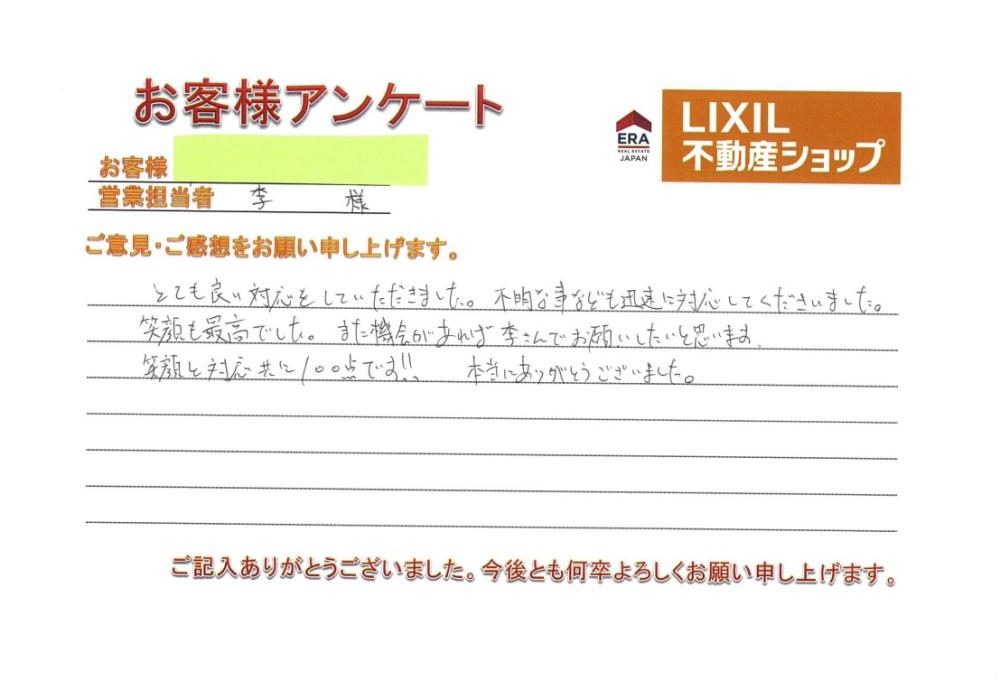 お客様アンケート
ERA
REAL ESTATE
JAPAN
LIXIL
不動産ショップ
お客様
営業担当者 李 様
ご意見・ご感想をお願い申し上げます。
とても良い対応をしていただきました。不明な事なども迅速に対応してくださいました。
笑顔も最高でした。また機会があれば李さんでお願いしたいと思います。
笑顔と対応共に100点です!! 本当にありがとうございました。
ご記入ありがとうございました。今後とも何卒よろしくお願い申し上げます。